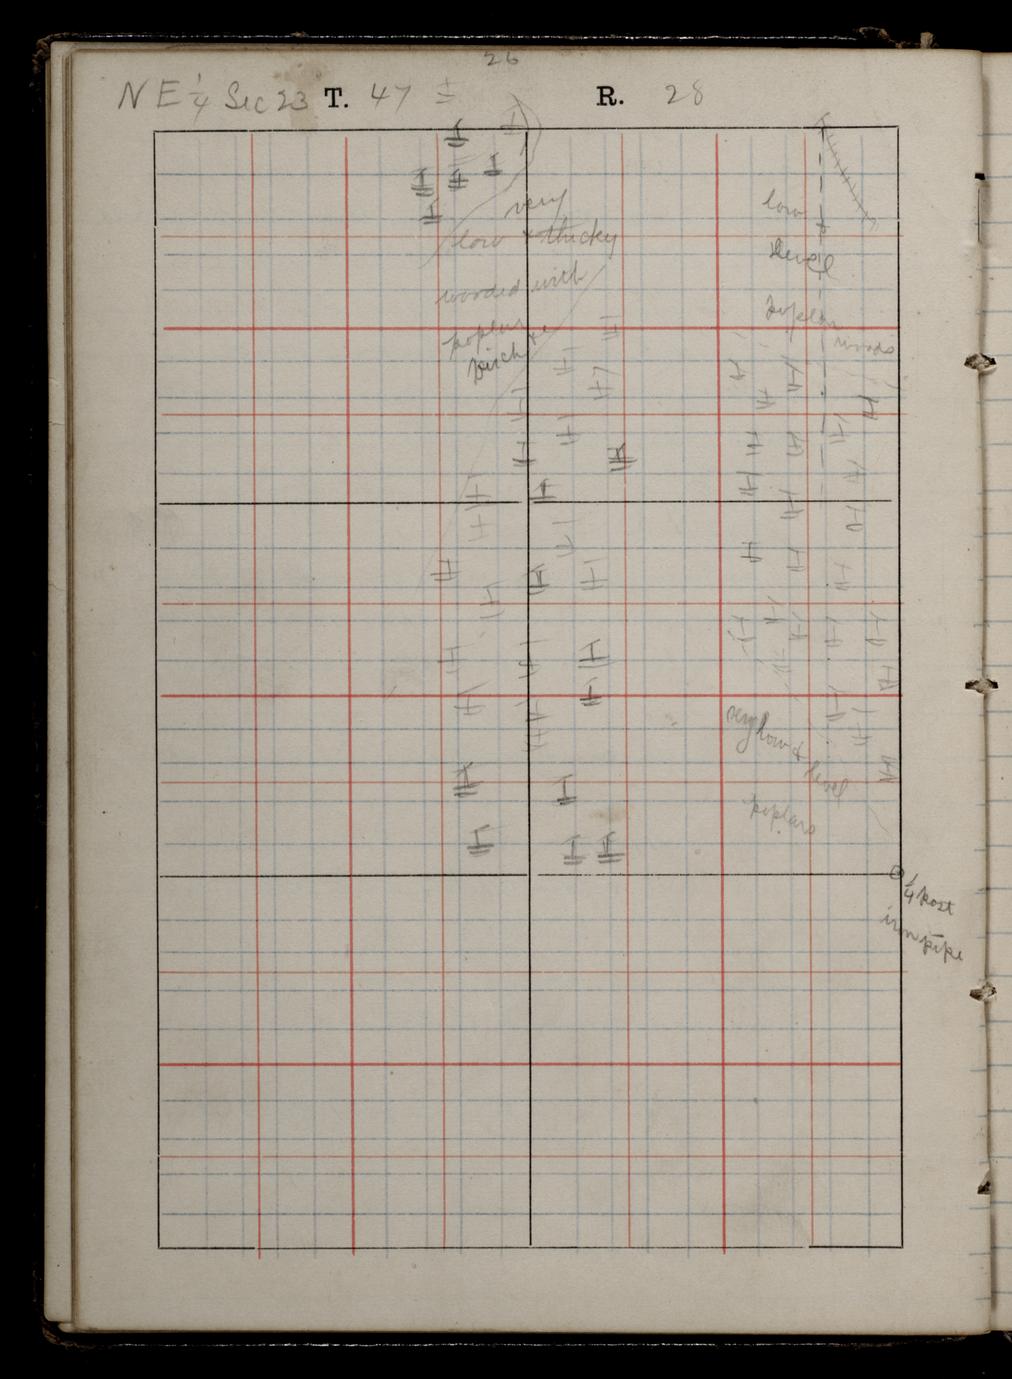 26
NE 1/4 Sec 23 T. 47 R. 28
very
low & thickly
wooded with
poplar
birch
low
&
level
poplar
woods
very low &
level
poplars
1/4 post
iron pipe